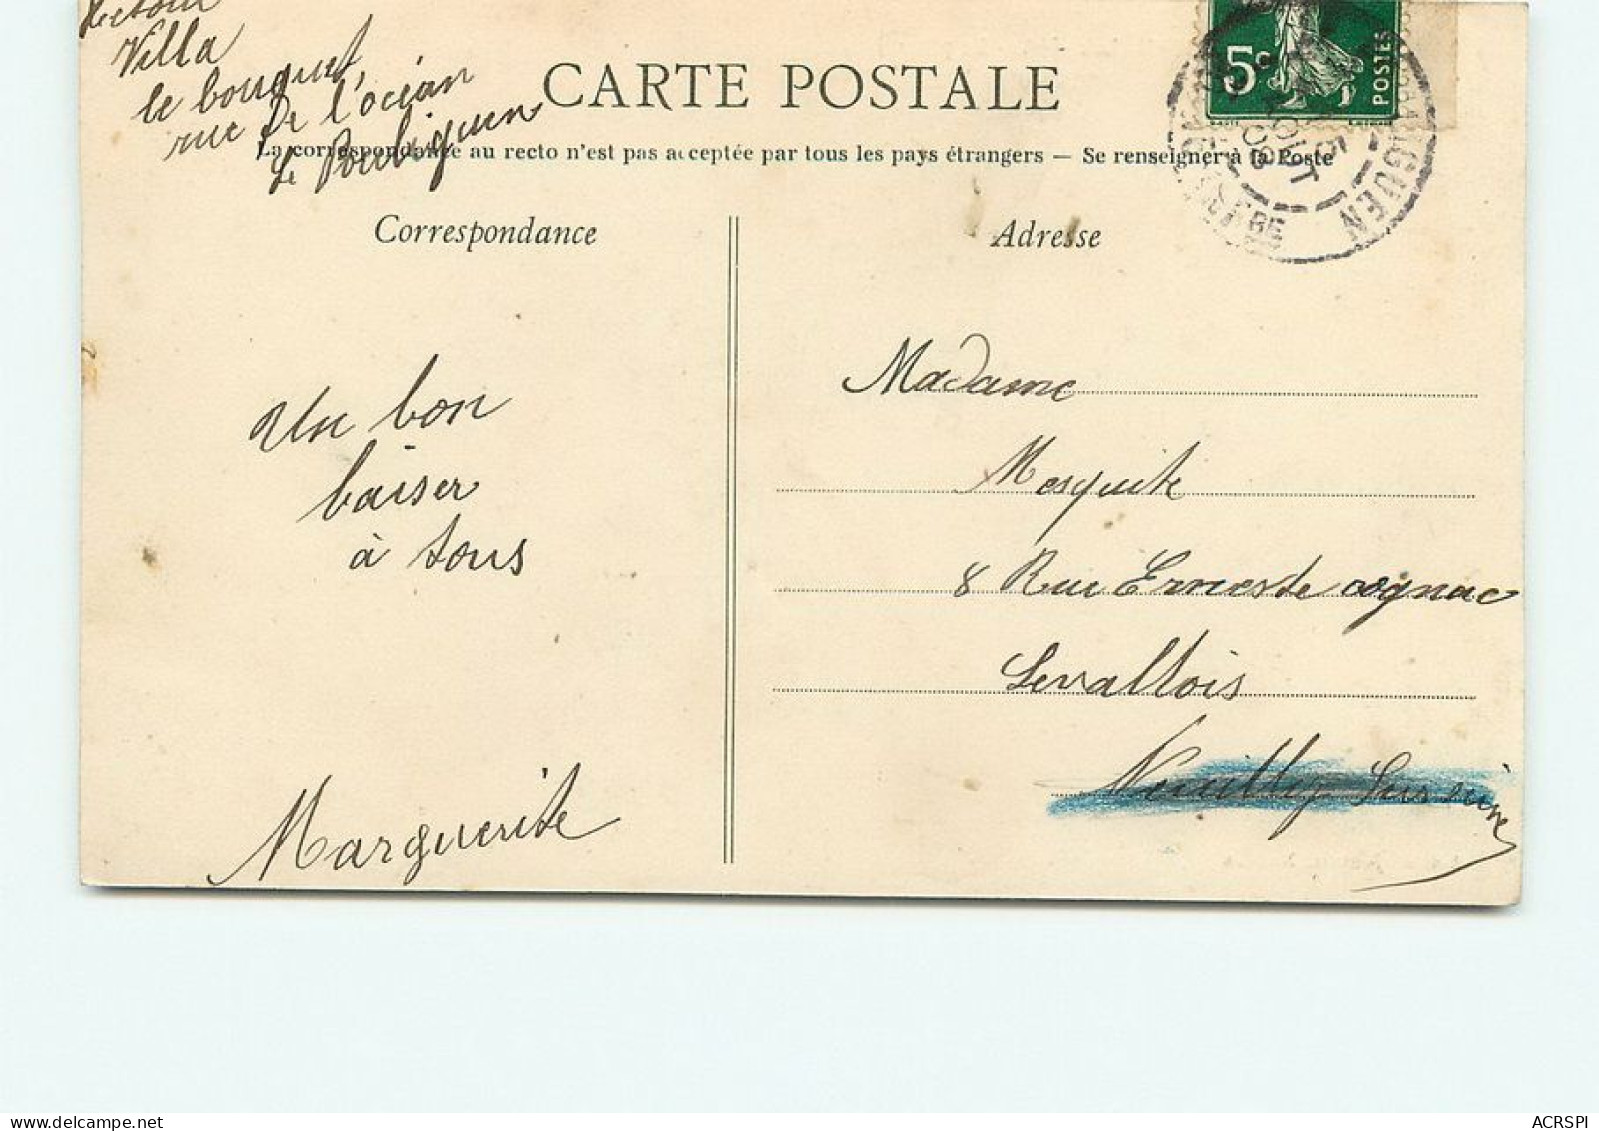 Villa
le bouquet
rue de l'océan
Le Pouliguen
CARTE POSTALE
La correspondance au recto n'est pas acceptée par tous les pays étrangers — Se renseigner à la Poste
5c
POSTES
AOUT
08
GUEN
Correspondance
Adresse
Un bon
baiser
à tous
Marguerite
Madame
Mesquite
8 Rue Erneste cognac
Levallois
Neuilly sur seine
ACRSPI